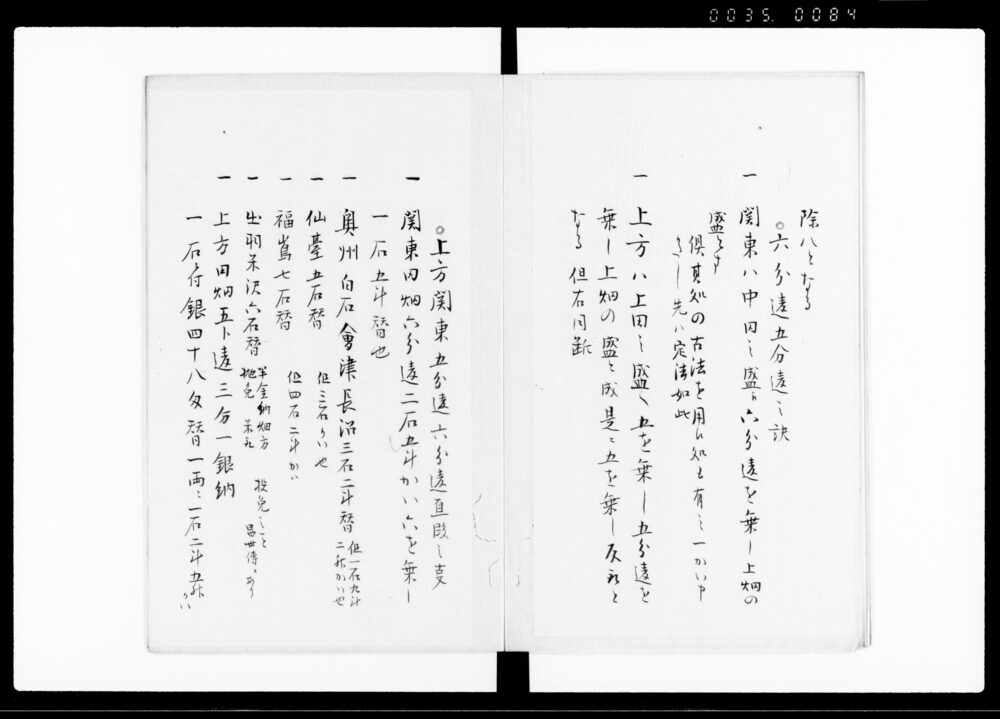 0035. 0084
除八となる
。六分違五分違之訣
一 関東ハ中田之盛ニ六分違を乗し上畑の
盛とす
倶其処の古法を用ル処も有之
先ハ定法如此
一 上方ハ上田之盛ヘ五を乗し五分違を
乗し上畑の盛と成是ニ五を乗し反取と
なる 但右同断
。上方関東五分違六分違直段之事
一 関東田畑六分違二石五斗かい六を乗し
一石五斗替也
一 奥州白石會津長沼三石二斗替 但一石九斗
二升かい也
一 仙臺五石替 但三石かい也
一 福嶌七石替 但四石二斗かい
一 出羽米沢六石替 半金納畑方
一 上方田畑五分違三分一銀納
一 一石ニ付銀四十八匁替一両ニ一石二斗五升
かい